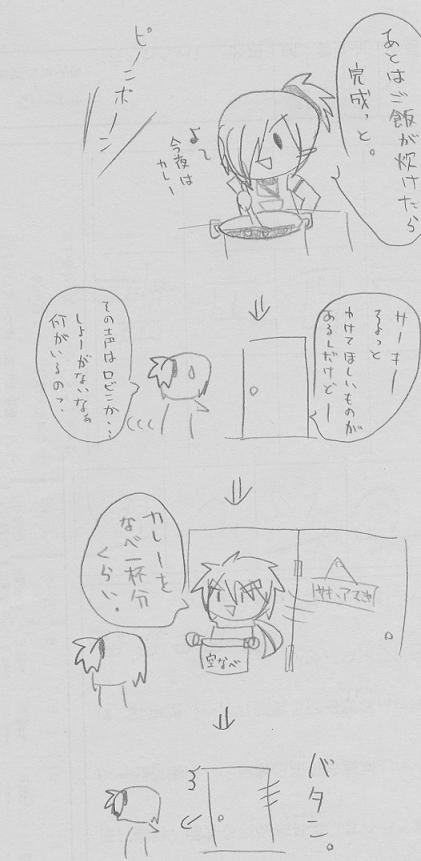 あとはご飯が炊けたら
完成っと。
♪～
今夜は
カレー
ピーンポーン
サーキー
ちょっと
わけてほしいものが
あるんだけどー
その声はロビンか・・
しょーがないなぁ
何がいるの？
カレーを
なべ一杯分
くらい。
空なべ
バタン。